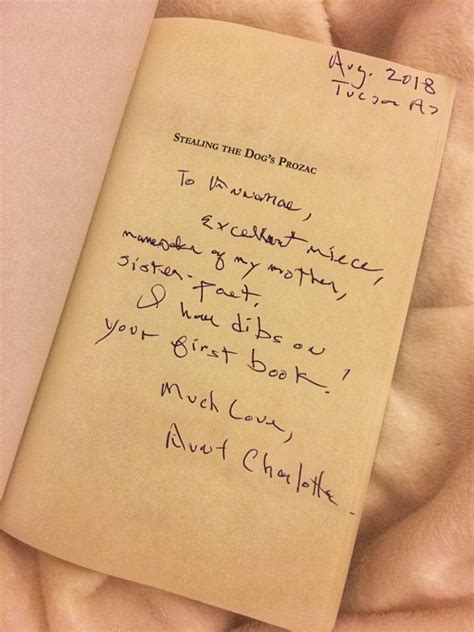 Aug. 2018
Tucson Az
STEALING THE DOG'S PROZAC
To Annamae,
Excellent niece,
namesake of my mother,
sister-poet,
I have dibs on
your first book!
Much Love,
Aunt Charlotte